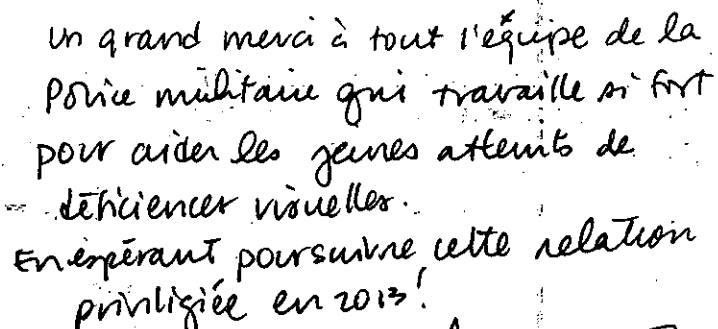 Un grand merci à tout l'équipe de la
Police militaire qui travaille si fort
pour aider les jeunes atteints de
déficiences visuelles.
En espérant poursuivre cette relation
priviligiée en 2013!